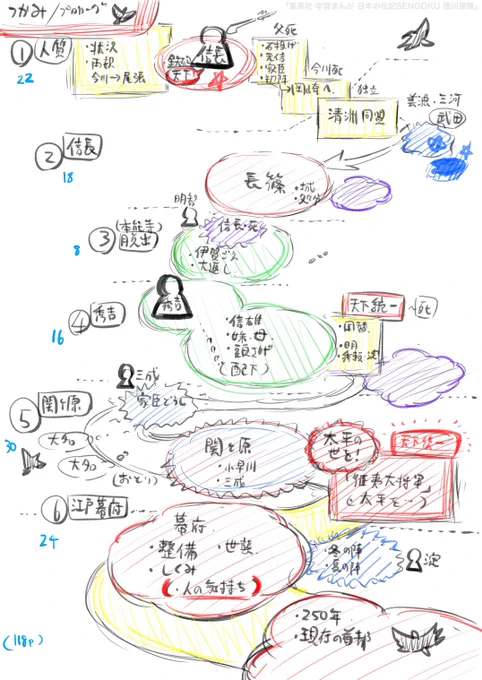 「集英社 学習まんが 日本の伝記SENGOKU 徳川家康」
つかみ/プロローグ
① 人質
22
・状況
・両親
今川→尾張
信長
天下
父死
・元信
・家臣
・初陣
今川死
独立
清洲同盟
三河
武田
② 信長
18
長篠
・城
明智
③ (本能寺)脱出
8
信長・死
・伊賀ごえ
・大返し
④ 秀吉
16
秀吉
・信雄
・妹、母
・頭さげ
(配下)
天下統一
死
・国替
・明
・秀頼・淀
三成
家臣どうし
⑤ 関ヶ原
30
(おとり)
関ヶ原
・小早川
・三成
太平の
世を!
天下統一
「征夷大将軍」
⑥ 江戸幕府
24
幕府
・整備
・世襲
・しくみ
(・人の気持ち)
・冬の陣
・夏の陣
淀
・250年
・現在の首都
(118p)